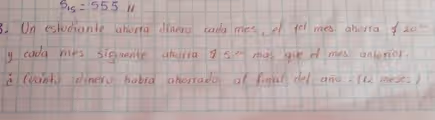 S₁₅ = 555 //
3. Un estudiante ahorra dinero cada mes, el 1er mes ahorra $ 20⁰⁰
y cada mes siguiente ahorra $ 5⁰⁰ mas que el mes anterior.
¿ Cuánto dinero habrá ahorrado al final del año = (12 meses)